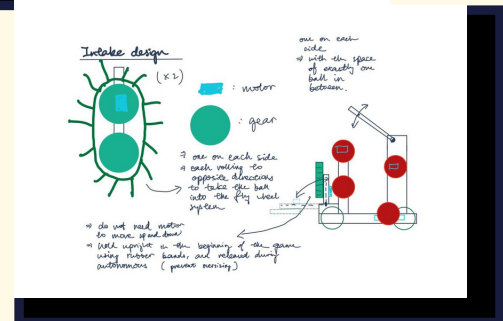 Intake design
(x2)
: motor
: gear
⇒ one on each side
⇒ each rolling to
opposite directions
to take the ball
into the fly wheel
system
one on each
side
⇒ with the space
of exactly one
ball in
between.
⇒ do not need motor
to move up and down
⇒ hold upright in the beginning of the game
using rubber bands, and released during
autonomous (prevent oversizing)